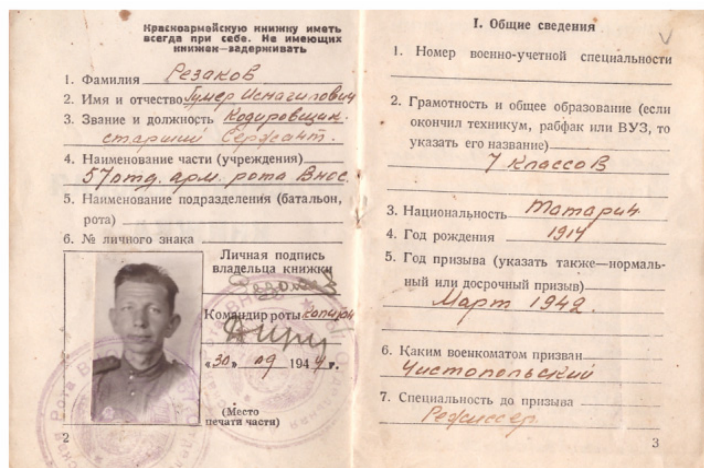 Красноармейскую книжку иметь
всегда при себе. Не имеющих
книжек—задерживать
1. Фамилия Резаков
2. Имя и отчество Гумер Исмагилович
3. Звание и должность Кодировщик.
старший Сержант.
4. Наименование части (учреждения)
57 отд. арм. рота Внос.
5. Наименование подразделения (батальон,
рота)
6. № личного знака
Личная подпись
владельца книжки
Командир роты капитан
«30» 09 1944 г.
(Место
печати части)
2
I. Общие сведения
1. Номер военно-учетной специальности
2. Грамотность и общее образование (если
окончил техникум, рабфак или ВУЗ, то
указать его название)
7 классов
3. Национальность Татарин
4. Год рождения 1914
5. Год призыва (указать также—нормаль-
ный или досрочный призыв)
Март 1942.
6. Каким военкоматом призван
Чистопольский
7. Специальность до призыва
Режиссер.
3